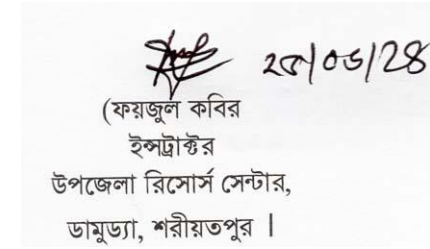 (ফয়জুল কবির
ইন্সট্রাক্টর
উপজেলা রিসোর্স সেন্টার,
ডামুড্যা, শরীয়তপুর ।